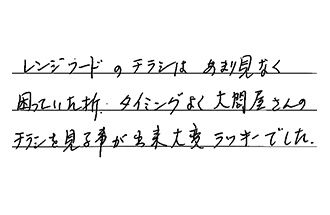 レンジフードのチラシは あまり見なく
困っていた折、タイミングよく大問屋さんの
チラシを見る事が出来大変ラッキーでした。